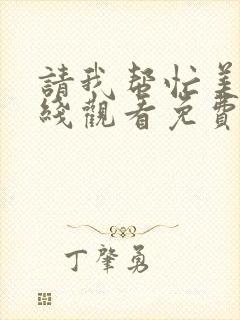 請我幫忙美
綫觀看免費
丁肇勇